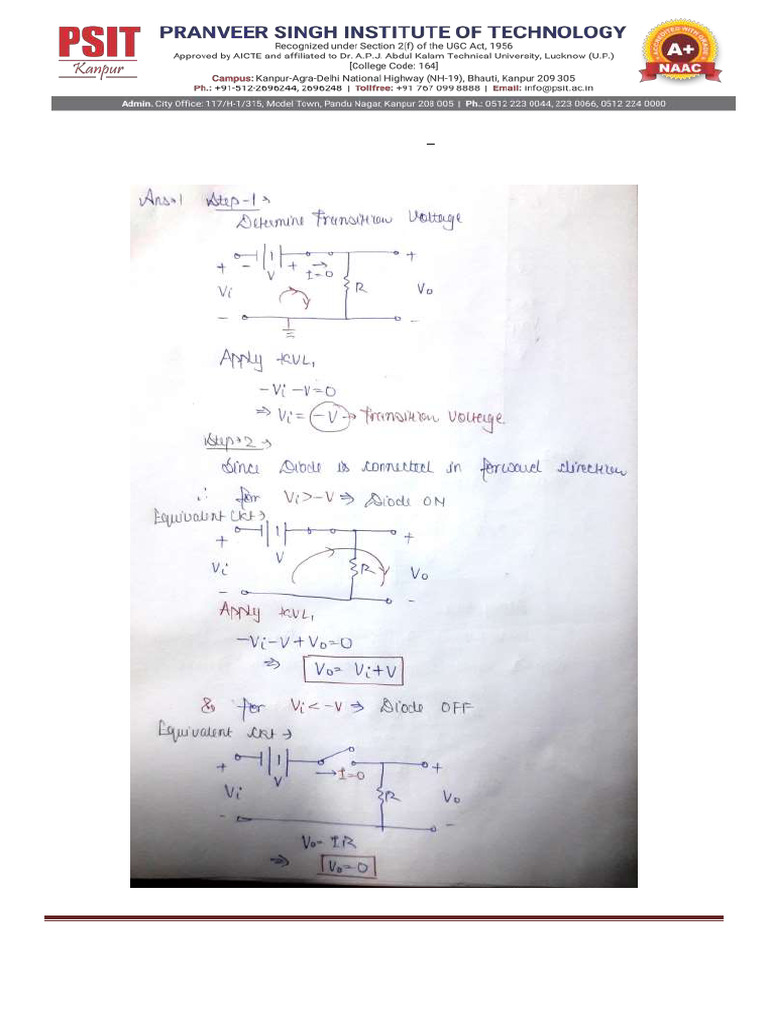 PSIT
Kanpur
PRANVEER SINGH INSTITUTE OF TECHNOLOGY
Recognized under Section 2(f) of the UGC Act, 1956
Approved by AICTE and affiliated to Dr. A.P.J. Abdul Kalam Technical University, Lucknow (U.P.)
[College Code: 164]
Campus: Kanpur-Agra-Delhi National Highway (NH-19), Bhauti, Kanpur 209 305
Ph.: +91-512-2696244, 2696248 | Tollfree: +91 767 099 8888 | Email: info@psit.ac.in
ACCREDITED WITH GRADE
A+
NAAC
Admin. City Office: 117/H-1/315, Model Town, Pandu Nagar, Kanpur 208 005 | Ph.: 0512 223 0044, 223 0066, 0512 224 0000
–
Ans→1 Step-1→
Determine Transition Voltage
+ - V + I=0 +
Vi R Vo
- -
Apply KVL,
-Vi -V=0
⇒ Vi = -V → Transition Voltage
Step→2→
Since Diode is connected in forward direction
∴ for Vi>-V ⇒ Diode ON
Equivalent Ckt→
+ V +
Vi R Vo
- -
Apply KVL,
-Vi-V+Vo=0
⇒ Vo= Vi+V
& for Vi<-V ⇒ Diode OFF
Equivalent Ckt→
+ V →I=0 +
Vi R Vo
- -
Vo= IR
⇒ Vo=0